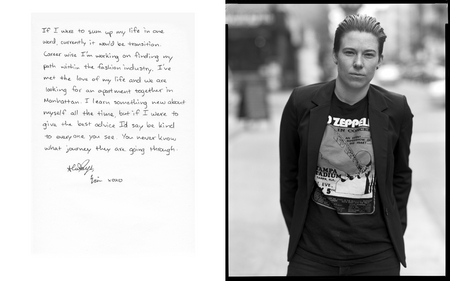 If I were to sum up my life in one
word, currently it would be transition.
Career wise I'm working on finding my
path within the fashion industry. I've
met the love of my life and we are
looking for an apartment together in
Manhattan. I learn something new about
myself all the time, but if I were to
give the best advice I'd say be kind
to everyone you see. You never know
what journey they are going through.
xoxo
D ZEPPELI
IN CONCERT
TAMPA
STADIUM